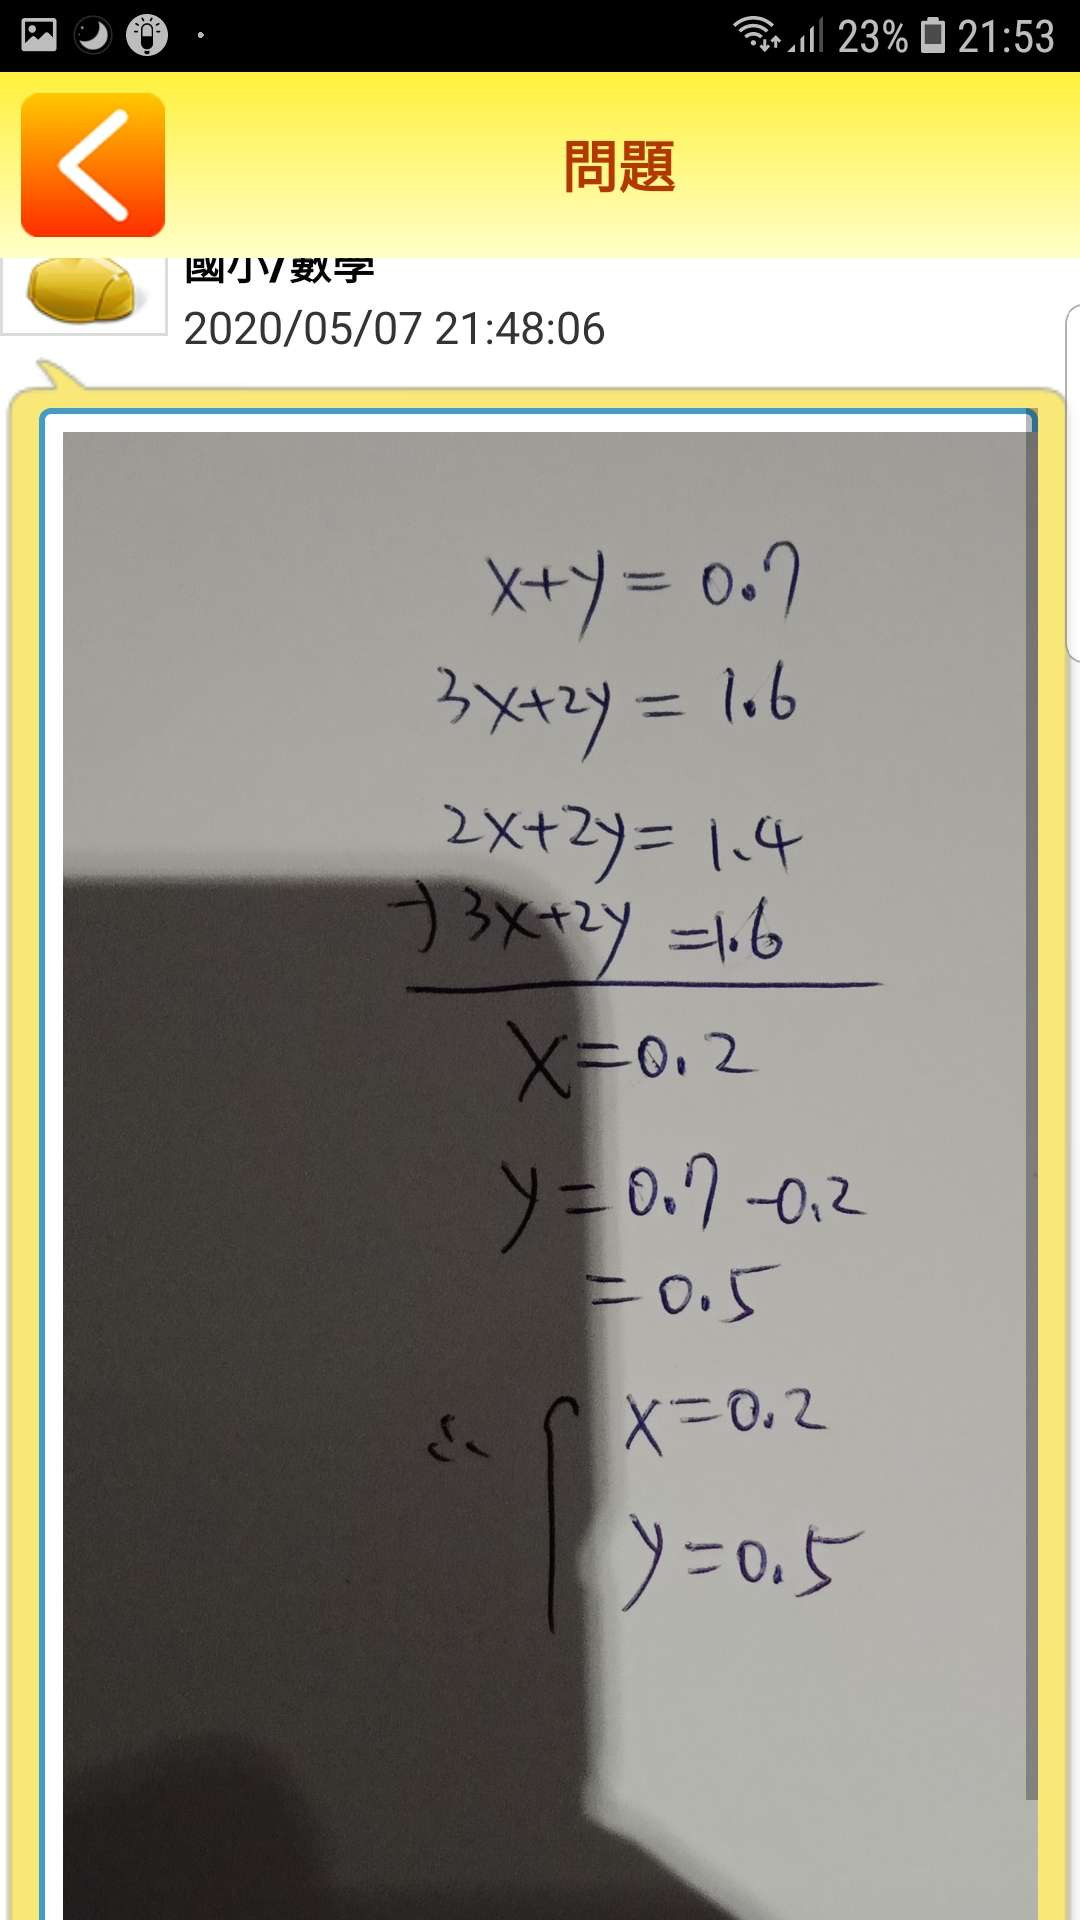 23% 21:53
問題
國小/數學
2020/05/07 21:48:06
x+y = 0.7
3x+2y = 1.6
2x+2y= 1.4
-) 3x+2y =1.6
x=0.2
y = 0.7 -0.2
= 0.5
∴ { x=0.2
y=0.5